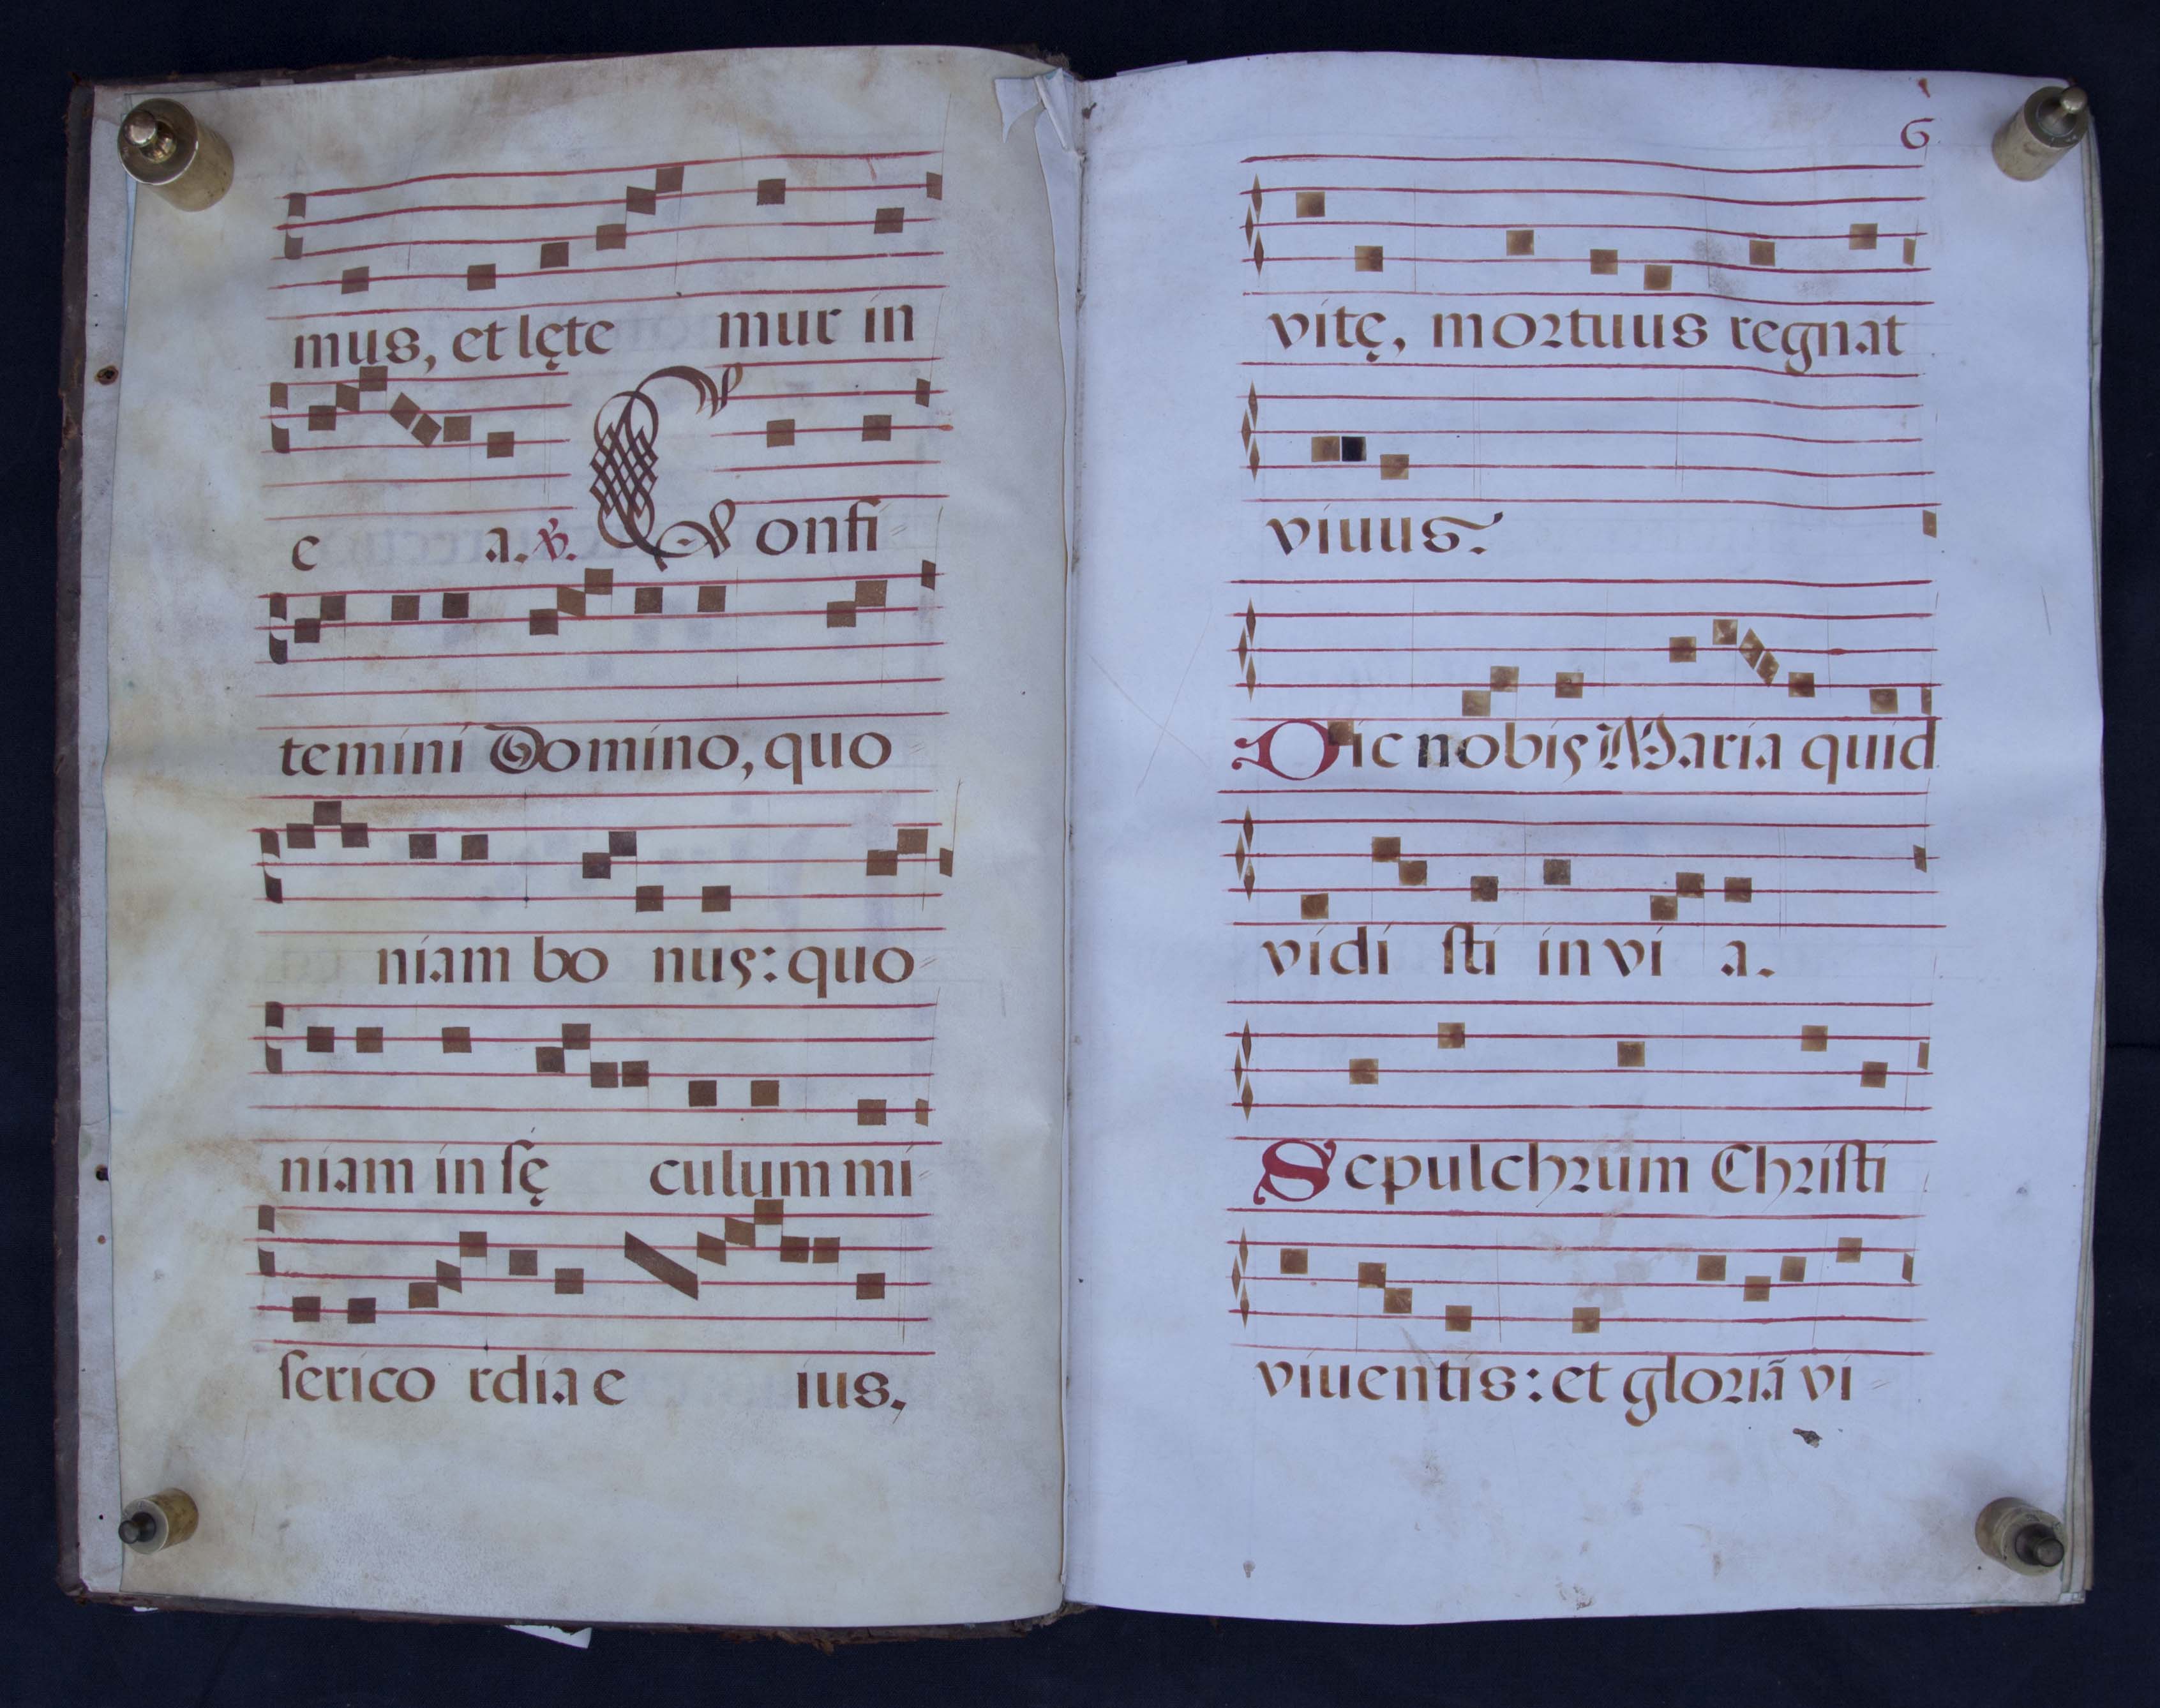 mus, et lęte mur in
e a. ℣. Confi
temini Domino, quo
niam bo nus: quo
niam in ſę culum mi
ſerico rdia e ius.
6
vitę, mortuus regnat
viuus.
Dic nobis Maria quid
vidi ſti in vi a.
Sepulchrum Chriſti
viuentis: et gloriã vi